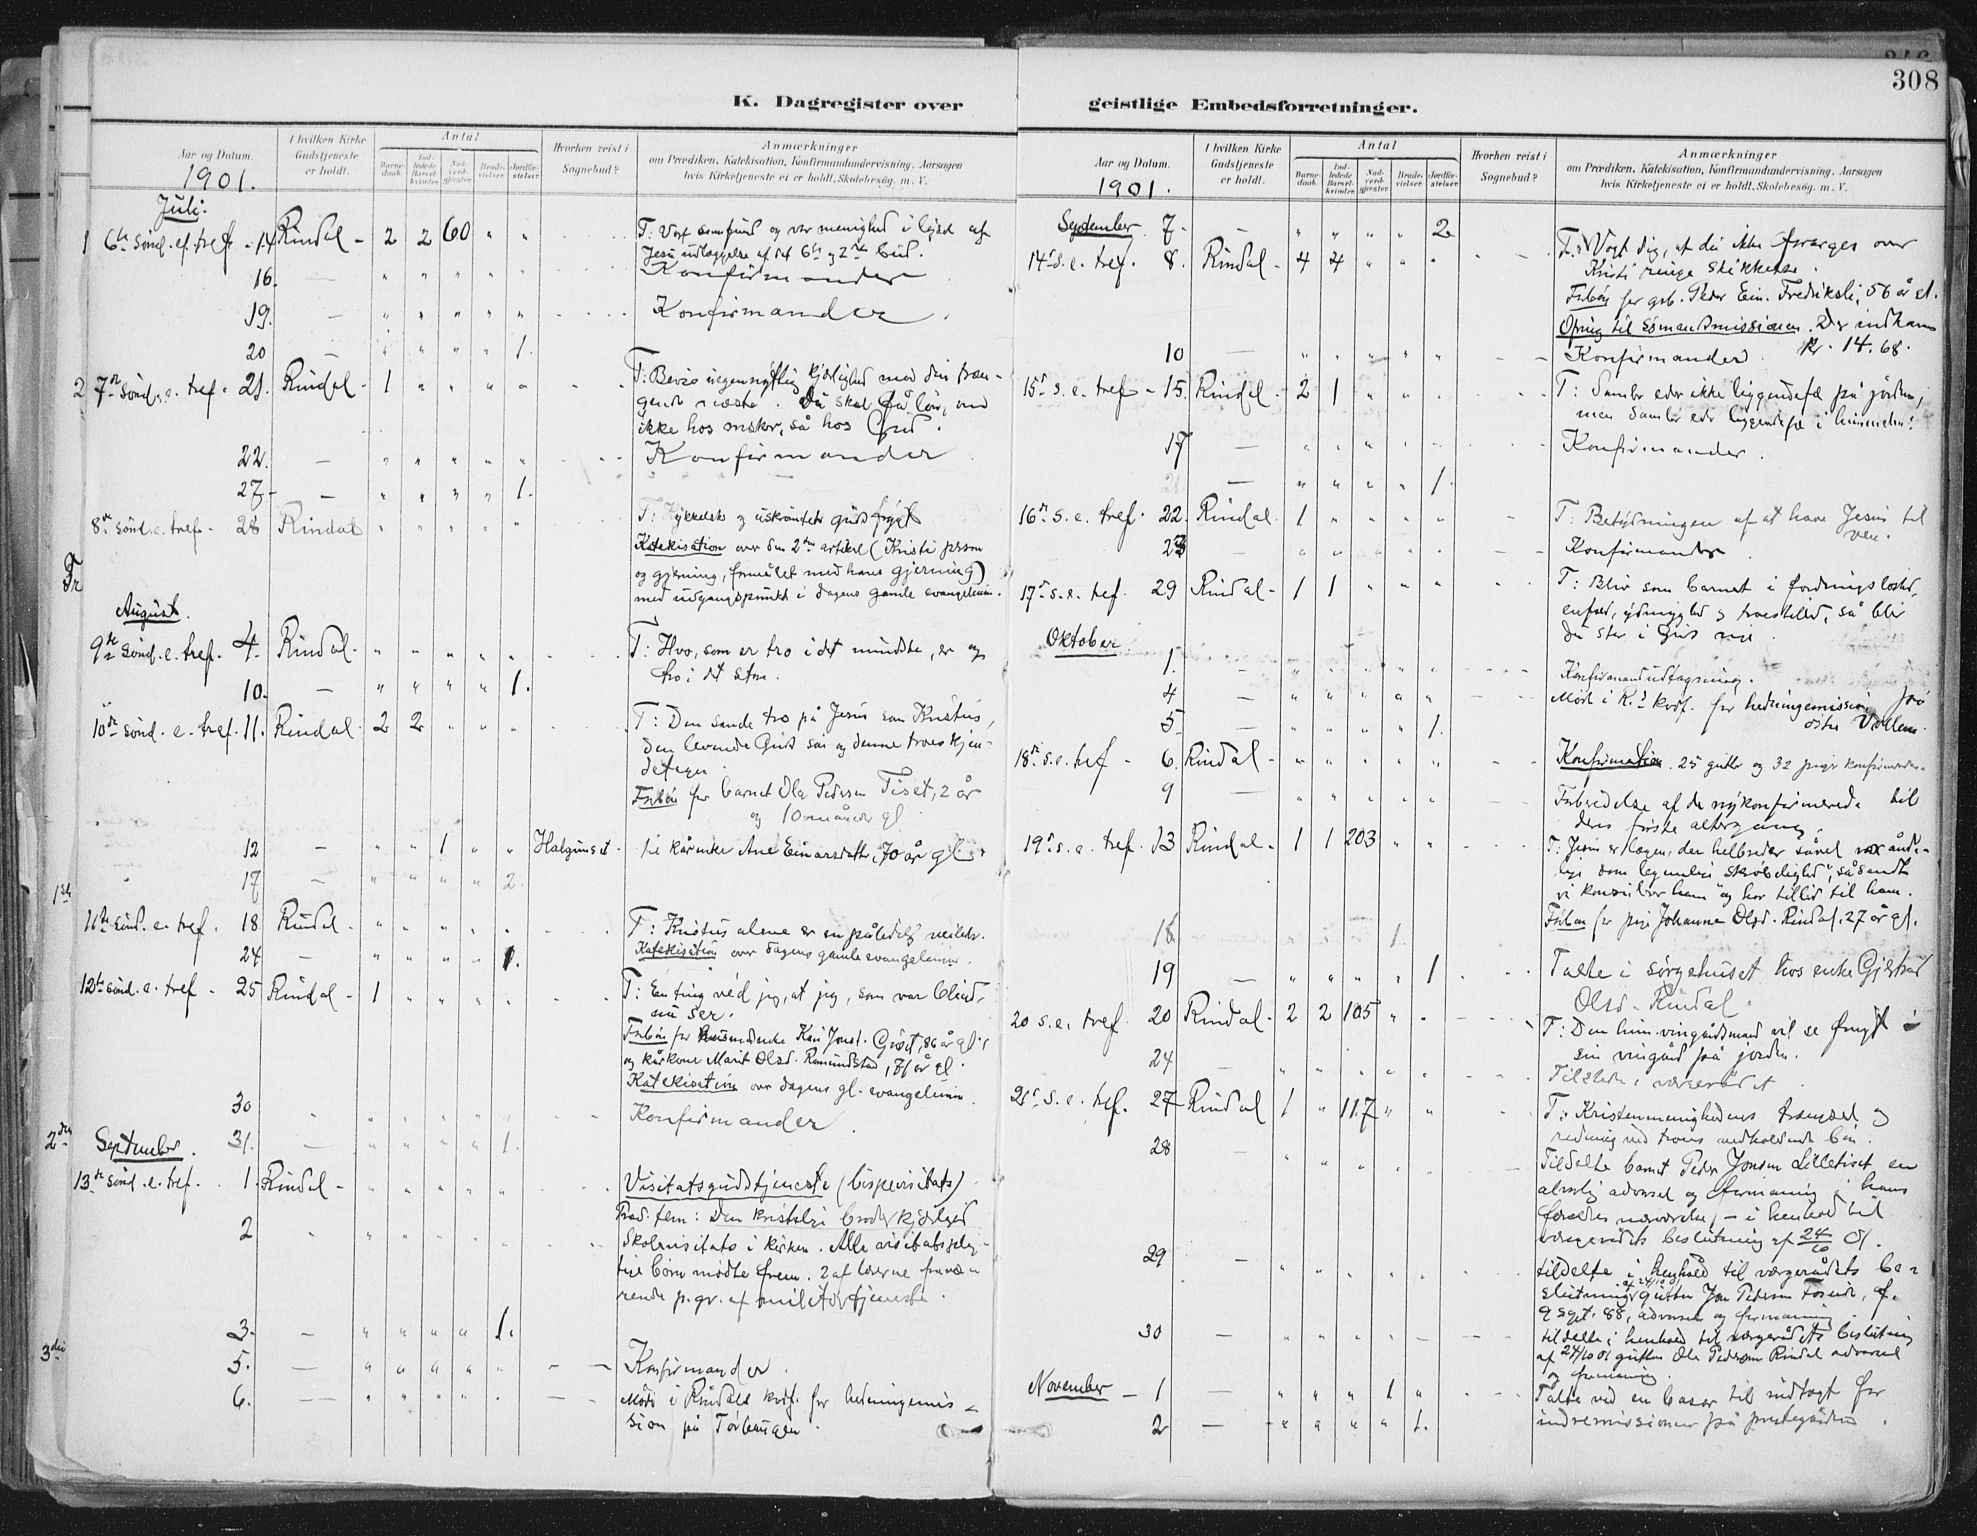 308
K. Dagregister over
geistlige Embedsforretninger.
Aar og Datum.
1901.
I hvilken Kirke Gudstjeneste er holdt.
Antal
Barnedaab.
Indledede Barselkvinder.
Nadverdgjester.
Brudevielser.
Jordfæstelser.
Hvorhen reist i Sognebud?
Anmærkninger
om Prædiken, Katekisation, Konfirmandundervisning, Aarsagen
hvis Kirketjeneste ei er holdt, Skolebesøg, m. V.
Juli.
1 6te Sønd. ef. tref. - 14 Rindal - 2 2 60 " " T: Vort samfund og vor menighed i lyset af
Jesu udlæggelse af det 6te og 2det bud.
16. — Konfirmander
19. — Konfirmander.
20 — 1.
2 7de Sønd. e. tref. - 21. Rindal - 1 T: Bevis uegennyttig kjærlighed mod din træn-
gende næste. Du skal få løn, om
ikke hos msker, så hos Gud.
22. — Konfirmander
27. — 1.
8de Sønd. e. tref. - 28 Rindal T: Hykkelsk og uskrømtet gudsfrygt
Katekisation over den 2den artikel (Kristi person
og gjerning, formålet med hans gjerning)
med udgangspunkt i dagens gamle evangelium.
August.
9de Sønd. e. tref. 4. Rindal - T: Hvo, som er tro i det mindste, er og
tro i det store.
10. — 1.
10de Sønd. e. tref. 11. Rindal 2 2 T: Den sande tro på Jesus som Kristus,
den levende Guds søn og denne troes kjen-
detegn
Forbøn for barnet Ola Pedersen Tiset, 2 år
og 10 måneder gl.
12 — 1 Halgunset - til kårenke Ane Einarsdatter, 70 år gl.
17 — 2.
11te Sønd. e. tref. 18 Rindal - T: Kristus alene er en pålidelig veileder.
Katekisation over dagens gamle evangelium.
24 — 1.
12te Sønd. e. tref. - 25 Rindal - 1 T: En ting véd jeg, at jeg, som var blind,
nu ser.
Forbøn for husmandsenke Kari Jonsd. 86 år gl.
og kårkone Marit Olsd. Romundstad, 71 år gl.
Katekisation over dagens gl. evangelium.
30 Konfirmander.
31. — 1.
September.
13de Sønd. e. tref. 1. Rindal - Visitatsgudstjeneste (bispevisitats)
Præd. tem: Den kristelige broderkjærlighed
2 Skolevisitats i kirken. Alle visitatsplig-
tige børn mødte frem. 2 af lærerne fravæ-
rende p. gr. af militærtjeneste.
3. — 1.
5. — Konfirmander.
6. — Møde i Rindals kvdf. for hedningemis-
sion på Torhaugen.
September 7. — 2.
14de S. e. tref. 8. Rindal - 4 4 T: Vogt dig, at du ikke forarges over
Kristi ringe skikkelse.
Forbøn for grb. Peder Ein. Fredriksli, 56 år gl.
Ofring til Sømandsmissionen. Der indkom
kr. 14.68.
10 — Konfirmander
15de S. e. tref. - 15. Rindal - 2 1 T: Samler eder ikke liggendefæ på jorden,
men samler eder liggendefæ i himmelen!
17 — Konfirmander.
— 1.
16de S. e. tref. 22. Rindal. 1 T: Betydningen af at have Jesus til
ven.
23 — Konfirmander
17de S. e. tref. 29 Rindal - 1 1 T: Bliv som barnet i fordringsløshed,
enfold, ydmyghed og troestillid, så blir
du stor i Guds rige.
Oktober.
1. — Konfirmandudtagning.
4 — Møde i K.s kvdf. for hedningemission på
østre Vollen.
5 — 1.
18de S. e. tref - 6. Rindal - Konfirmation. 25 gutter og 32 piger konfirmeredes.
9 — Forberedelse af de nykonfirmerede til
deres første altergang.
19de S. e. tref. 13 Rindal - 1 1 203 T: Jesus er lægen, der helbreder såvel ånde-
lig som legemlig skrøbelighed, såsandt
vi konsulerer ham og har tillid til ham.
Forbøn for pige Johanna Olsd. Rindal, 27 år gl.
18. 1.
19 — 1 Talte i sørgehuset hos enke Gjertrud
Olsd. Rindal.
20 S. e. tref. 20 Rindal - 2 2 105 T: Den him. vingårdsmand vil se frugt i
sin vingård på jorden.
24 — Tilstede i værgerådet
21de S. e. tref. 27 Rindal 1 " 117 T: Kristenmenighedens trængsel og
redning ved troens vedholdende bøn.
28 — Tildelte barnet Peder Jonsen Lilletiset en
alvorlig advarsel og formaning i hans
forældres nærværelse, - i henhold til
værgerådets beslutning af 24/10 01.
29 — tildelte i henhold til værgerådets be-
slutning af 24/10 01 gutten Jon Pedersen f.
9 Sept. 88, advarsel og formaning
30 — tildelte i henhold til værgerådets beslutning
af 24/10 01 gutten Ole Pedersen Rindal advarsel
og formaning.
November - 1 — 1 Talte ved en basar til indtægt for
indremissionen på prestegården.
2 — 1.
Fr
1ste
2den
3die